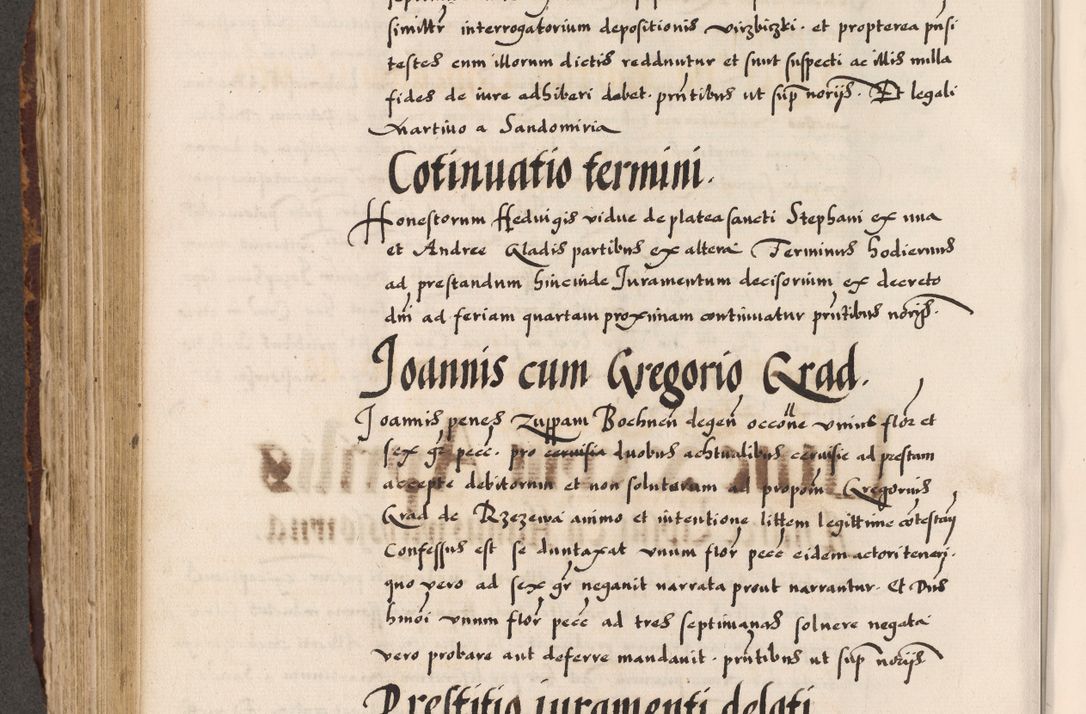 similtr interrogatorium depositionis virzbiczki · et propterea pnsi
testes cum illorum dictis reddnutur et sunt suspecti ac illis nulla
fides de iure adhiberi debet · pntibus ut sup norijs · Et legali
Martino a Sandomiria
Cotinuatio termini ·
Honestorum Hedvigis vidue de platea sancti Stephani ex una
et Andree Gladis partibus ex altera Terminus hodiernus
ad prestandum hincinde Juramentum decisorium ex decreto
dni ad feriam quartam proximam continuatur pntibus norijs ·
Joannis cum Gregorio Grad ·
Joannis penes Zuppam Bochnen degen occone unius flor et
sex gr pecc · pro cervisia duobus achtualibus cervisie ad prestam
accepte debitorum et non solutarum ad propoin Gregorius
Grad de Rzezewa animo et intentione littem legittime cotestan
Confessus est se duntaxat unum flor pecc eidem actori teneri ·
quo vero ad sex gr negauit narrata prout narrantur · Et Dns
hmoi unum flor pecc ad tres septimanas soluere negata
vero probare aut deferre mandauit · pntibus ut sup norijs
Prestitio iuramenti delati